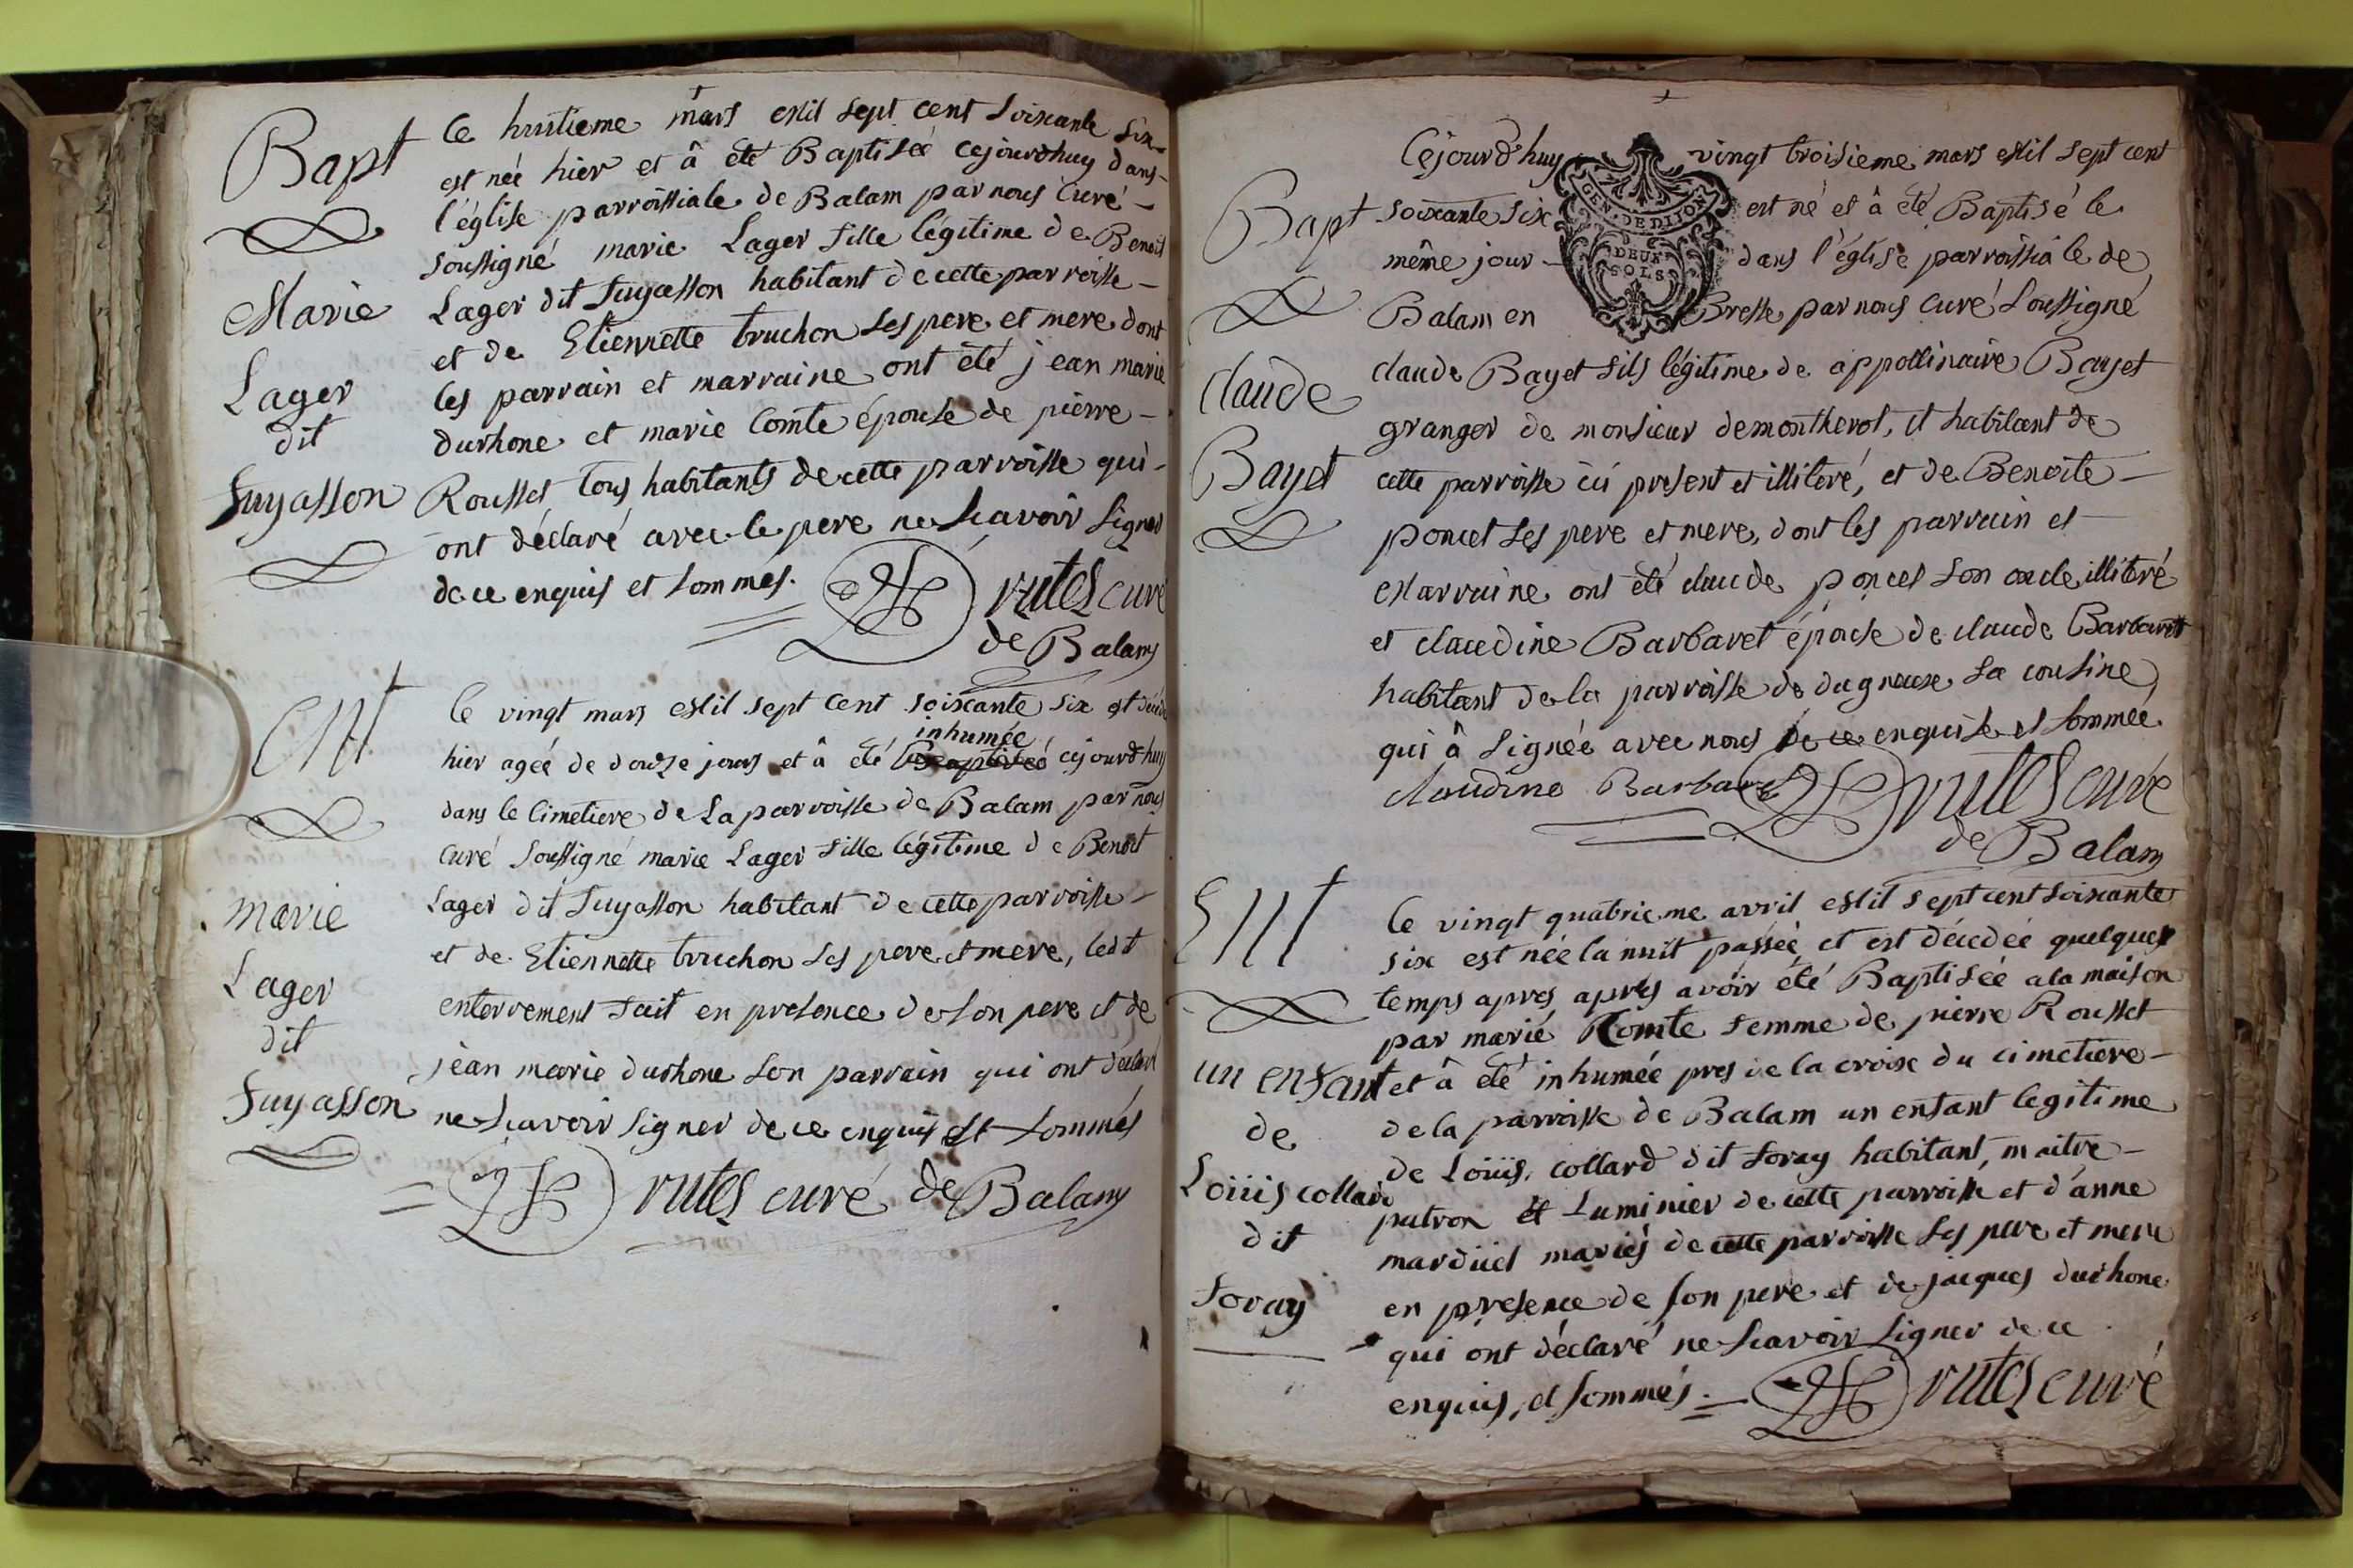 Bapt
Marie
Lager
dit
fuyasson
Le huitieme mars Mil sept cent soixante six
est née hier et â été Baptisée cejourdhuy dans
l'église parroissiale de Balam par nous Curé
soussigné marie Lager fille légitime de Benoit
Lager dit fuyasson habitant de cette parroisse
et de Etiennette truchon ses pere et mere dont
les parrain et marraine ont été jean marie
durhone et marie Comte épouse de pierre
Rousset tous habitants de cette parroisse qui
ont déclaré avec le pere ne scavoir signer
de ce enquis et sommés.
rutes curé
de Balam
Ent
marie
Lager
dit
fuyasson
le vingt mars Mil sept cent soixante six est
inhumée
hier agée de douze jours et â été cejourd'huy
dans le cimetiere de La parroisse de Balam par nous
curé soussigné marie Lager fille légitime de Benoit
Lager dit fuyasson habitant de cette parroisse
et de Etiennette truchon ses pere et mere, ledt
enterrement fait en presence de son pere et de
jéan marie durhone son parrain qui ont déclaré
ne scavoir signer de ce enquis et sommés
rutes curé de Balam
Bapt
claude
Bayet
Cejourd'huy vingt troisieme mars Mil sept cent
soixante six est né et â été Baptisé le
même jour dans l'église parroissiale de
Balam en Bresse par nous curé soussigné
GEN. DE DIJON
DEUX
SOLS
claude Bayet fils légitime de appollinaire Bayet
granger de monsieur demontherot, et habitant de
cette parroisse ici present et illiteré, et de Benoite
poncet ses pere et mere, dont les parrain et
Marraine ont été claude poncet son oncle illiteré
et claudine Barbaret épouse de claude Barbaret
habitant de la parroisse de dagneux sa cousine
qui â signée avec nous de ce enquise et sommée.
claudine Barbaret
rutes curé
de Balam
Ent
un enfant
de
Loüis collard
dit
foray
le vingt quatrieme avril Mil sept cent soixante
six est née la nuit passée et est décedée quelques
temps apres apres avoir été Baptisée a la maison
par marie Comte femme de pierre Rousset
et â été inhumée pres de la croix du cimetiere
de la parroisse de Balam un enfant legitime
de Loüis collard dit foray habitant, maitre
patron et Luminier de cette parroisse et d'anne
mardüel mariés de cette parroisse ses pere et mere
en presence de son pere et de jacques durhone
qui ont déclaré ne scavoir signer de ce
enquis, et sommés.
rutes curé